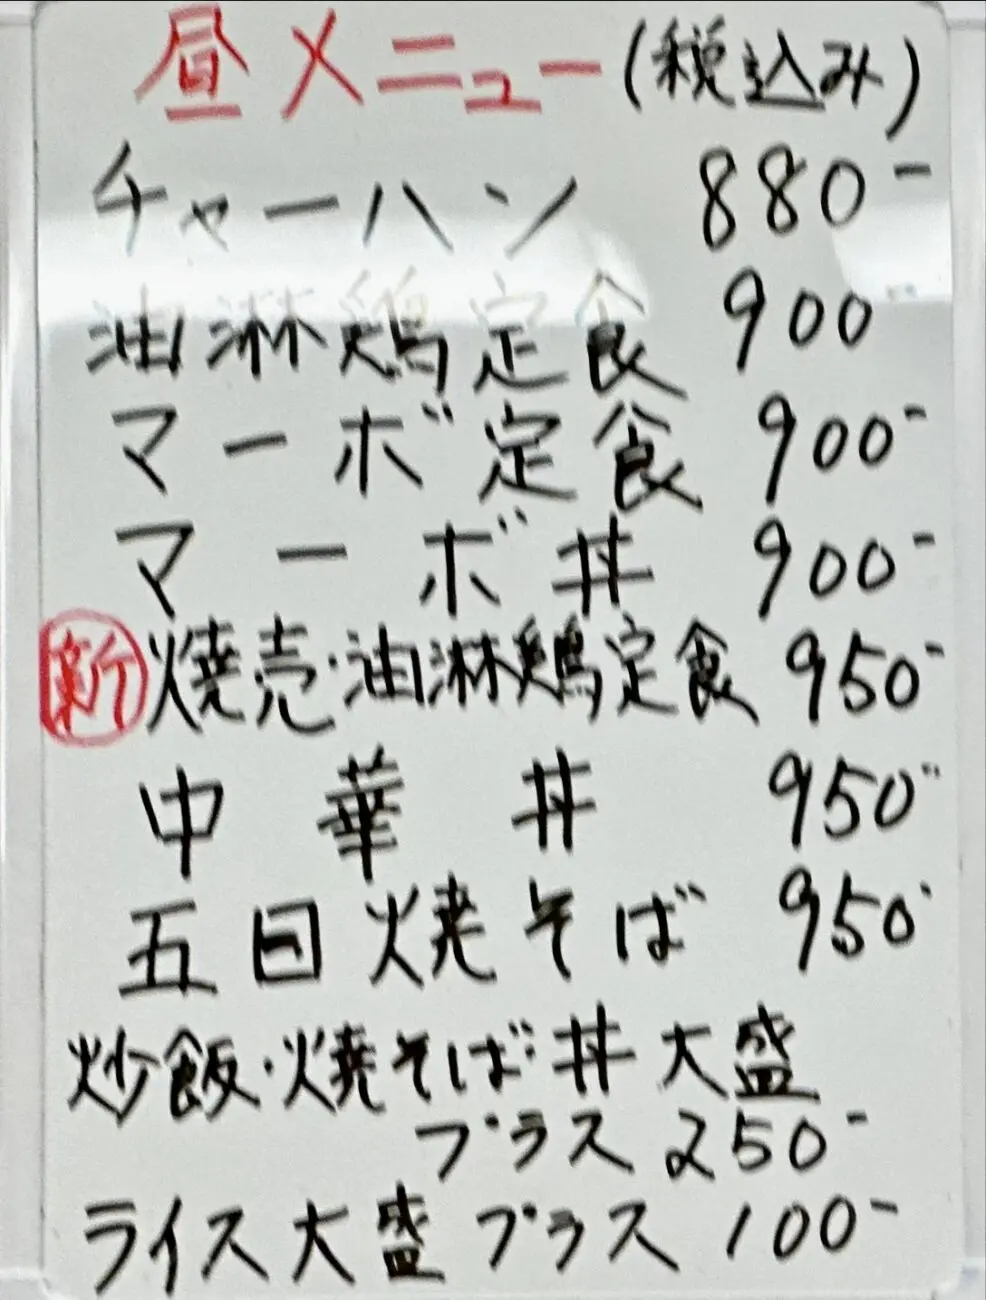 昼メニュー(税込み)
チャーハン 880-
油淋鶏定食 900-
マーボ定食 900-
マーボ丼 900-
新 焼売・油淋鶏定食 950-
中華丼 950-
五目焼そば 950-
炒飯・焼そば・丼大盛
プラス 250-
ライス大盛プラス 100-